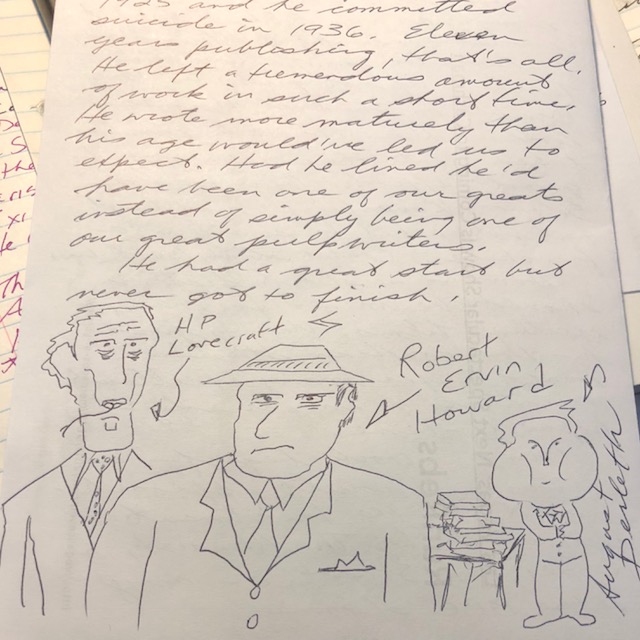 1925 and he committed
suicide in 1936. Eleven
years publishing, that's all.
He left a tremendous amount
of work in such a short time.
He wrote more maturely than
his age would've led us to
expect. Had he lived he'd
have been one of our greats
instead of simply being one of
our great pulpwriters.
He had a great start but
never got to finish.
HP
Lovecraft
Robert
Ervin
Howard
August
Derleth